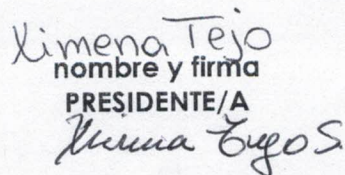 Ximena Tejo
nombre y firma
PRESIDENTE/A
Ximena Tejo S.